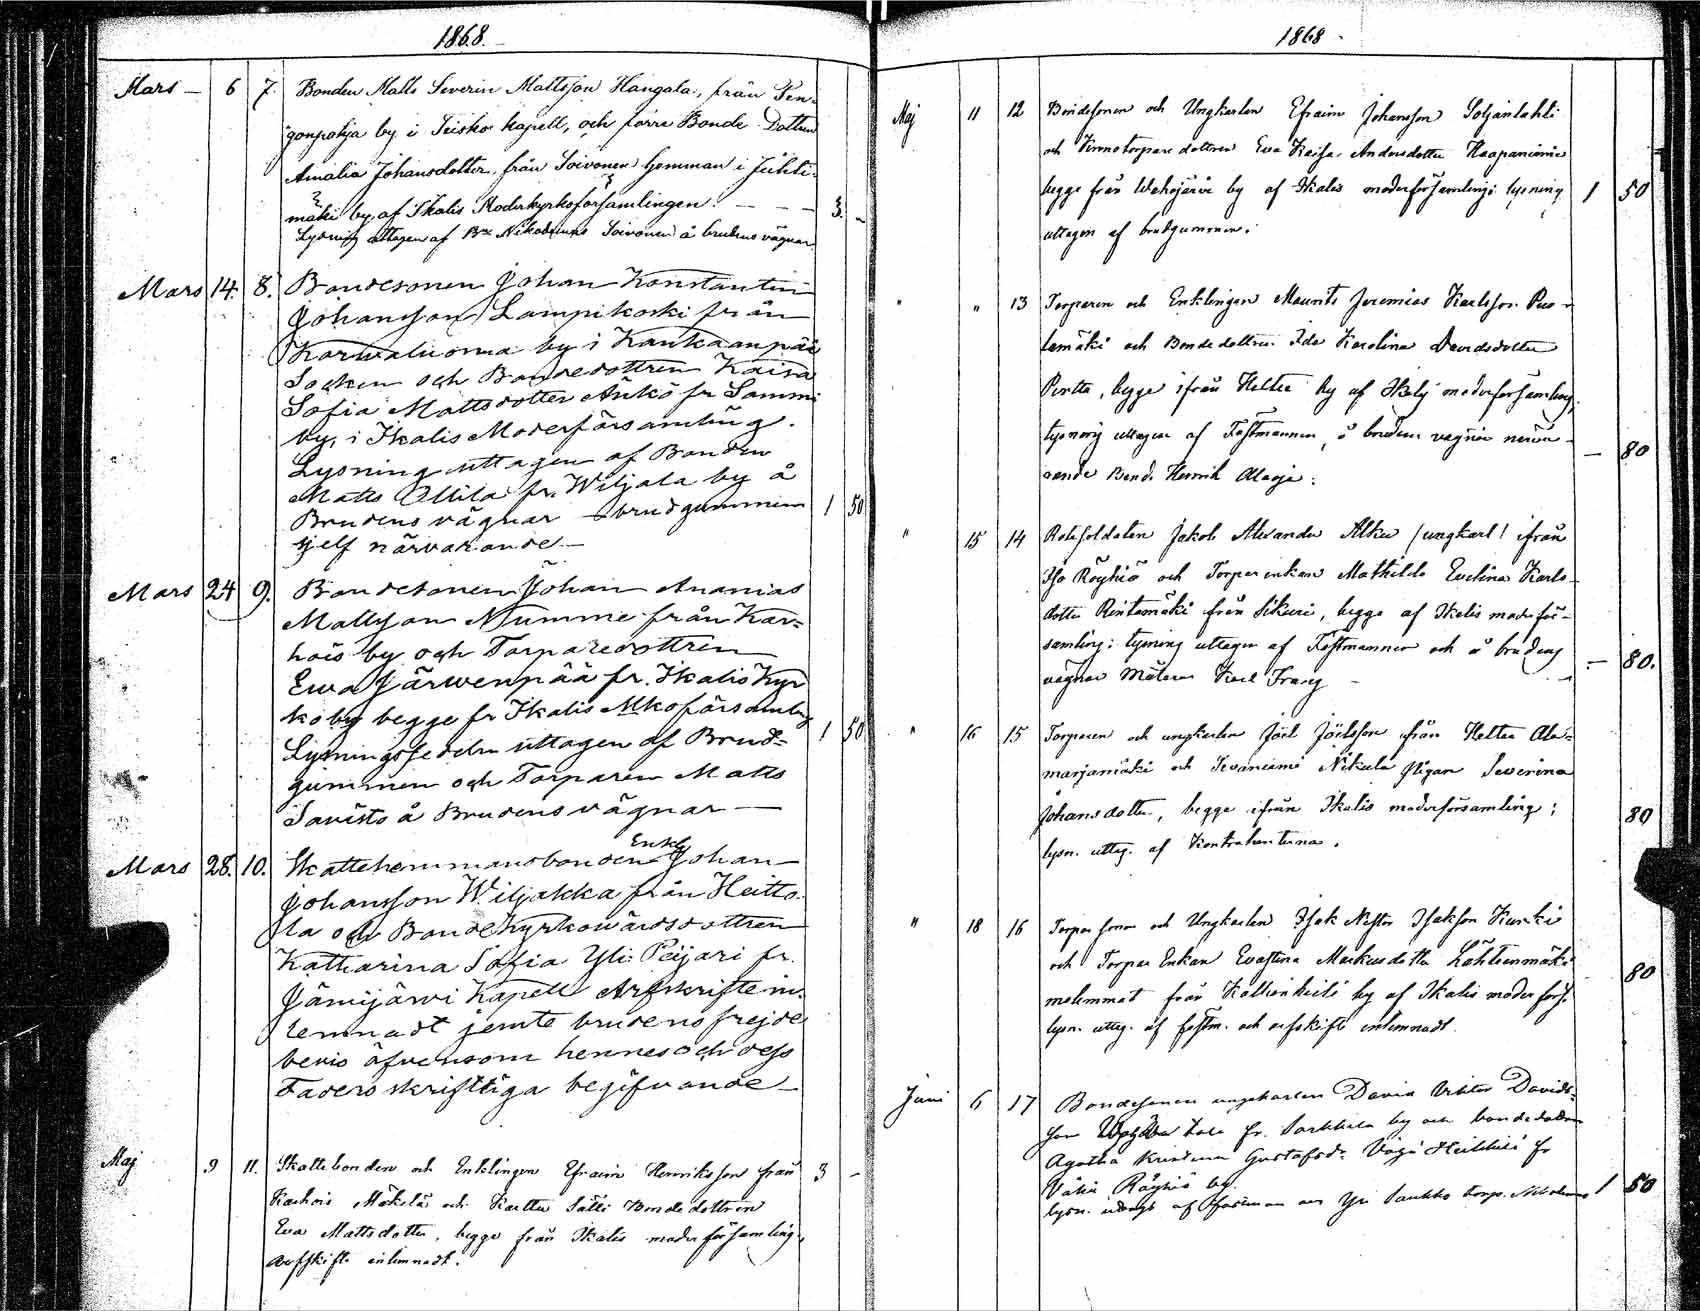 1868.
Mars – 6 7. Bonden Matts Severin Mattsson Hangala, från Pen-
gonpohja by i Teisko kapell, och förre Bonde Dottren
Amalia Johansdotter, från Soivonen hemman i Juhti-
mäki by, af Ikalis Moderkyrkoförsamlingen. – – – 3. –
Lysning uttagen af Bn Nikodemus Soivonen å brudens vägnar
Mars 14. 8. Bondesonen Johan Konstantin
Johansson Lampikoski från
Karwaluoma by i Kankaanpää
Socken och Bondedottren Kaisa
Sofia Mattsdotter Änkö fr Sammi
by, i Ikalis Moderförsamling.
Lysning uttagen af Bonden
Matts Ollila fr. Wiljala by å
Brudens vägnar – brudgummen 1 50
sjelf närvarande –
Mars 24 9. Bondesonen Johan Ananias
Mattsson Numme från Kar-
hois by och Torparedottren
Ewa Järwenpää fr. Ikalis Kyr
koby begge fr Ikalis Mkoförsamling 1 50
Lysningssedeln uttagen af Brud-
gummen och Torparen Matts
Savisto å Brudens vägnar –
Enkl
Mars 28. 10. Skattehemmansbonden Johan
Johansson Wiljakka från Heitto-
la och Bonde Kyrkowärdsdottren
Katharina Sofia Yli-Peijari fr.
Jämijärwi Kapell Arfskifte in-
lemnadt jemte brudens frejde
bevis äfvensom hennes och dess
Faders skriftliga begifvande –
Maj 9 11. Skattebonden och Enklingen Efraim Henriksson från 3 –
Karhois Mäkelä och Karttu Sätti Bondedottren
Eva Mattsdotter, begge från Ikalis moderförsamling,
Arfskifte inlemnadt.
1868
Maj 11 12 Bondesonen och Ungkarlen Efraim Johansson Soljanlahti
och Kronotorpare dottren Eva Kaisa Andersdotter Haapaniemi
begge från Wehojärvi by af Ikalis moderförsamling; lysning 1 50
uttagen af brudgummen.
" " 13 Torparen och Enklingen Maurits Jeremias Karlsson Puo-
lamäki och Bondedottren Ida Karolina Davidsdotter
Pertta, begge ifrån Heltee by af Ikalis moderförsamling;
lysning uttagen af Fästmannen, å brudens vägnar närva-
rande Bond. Henrik Alaoja. – 80
" 15 14 Rotesoldaten Jakob Alexander Alku /ungkarl/ ifrån
Iso Röyhiö och Torparenkan Mathilda Evelina Karls-
dotter Rintamäki från Sikuri, begge af Ikalis moderför-
samling; lysning uttagen af Fästmannen och å brudens
vägnar Målaren Karl Frang – – 80.
" 16 15 Torparen och ungkarlen Joel Joelsson ifrån Heltee Ala-
marjamäki och Kovaniemi Nikula pigan Severina
Johansdotter, begge ifrån Ikalis moderförsamling; 80
lysn. uttag. af Kontrahenterna.
" 18 16 Torparsonen och Ungkarlen Isak Nestor Isaksson Kurki
och Torpar Enkan Evastina Markusdotter Lähteenmäki 80
molemmat från Kallionkieli by af Ikalis moderförs.
lysn. uttag. af fästm. och arfskifte inlemnadt.
Juni 6 17 Bondesonen ungkarlen David Viktor Davids-
son Tala fr. Sarkkila by och bondedottren
Agatha Kristina Gustafsdr Heikkilä fr
Vähä Röyhiö by.
lysn. uttagt af fästman Yli Saukko torp. 1 50